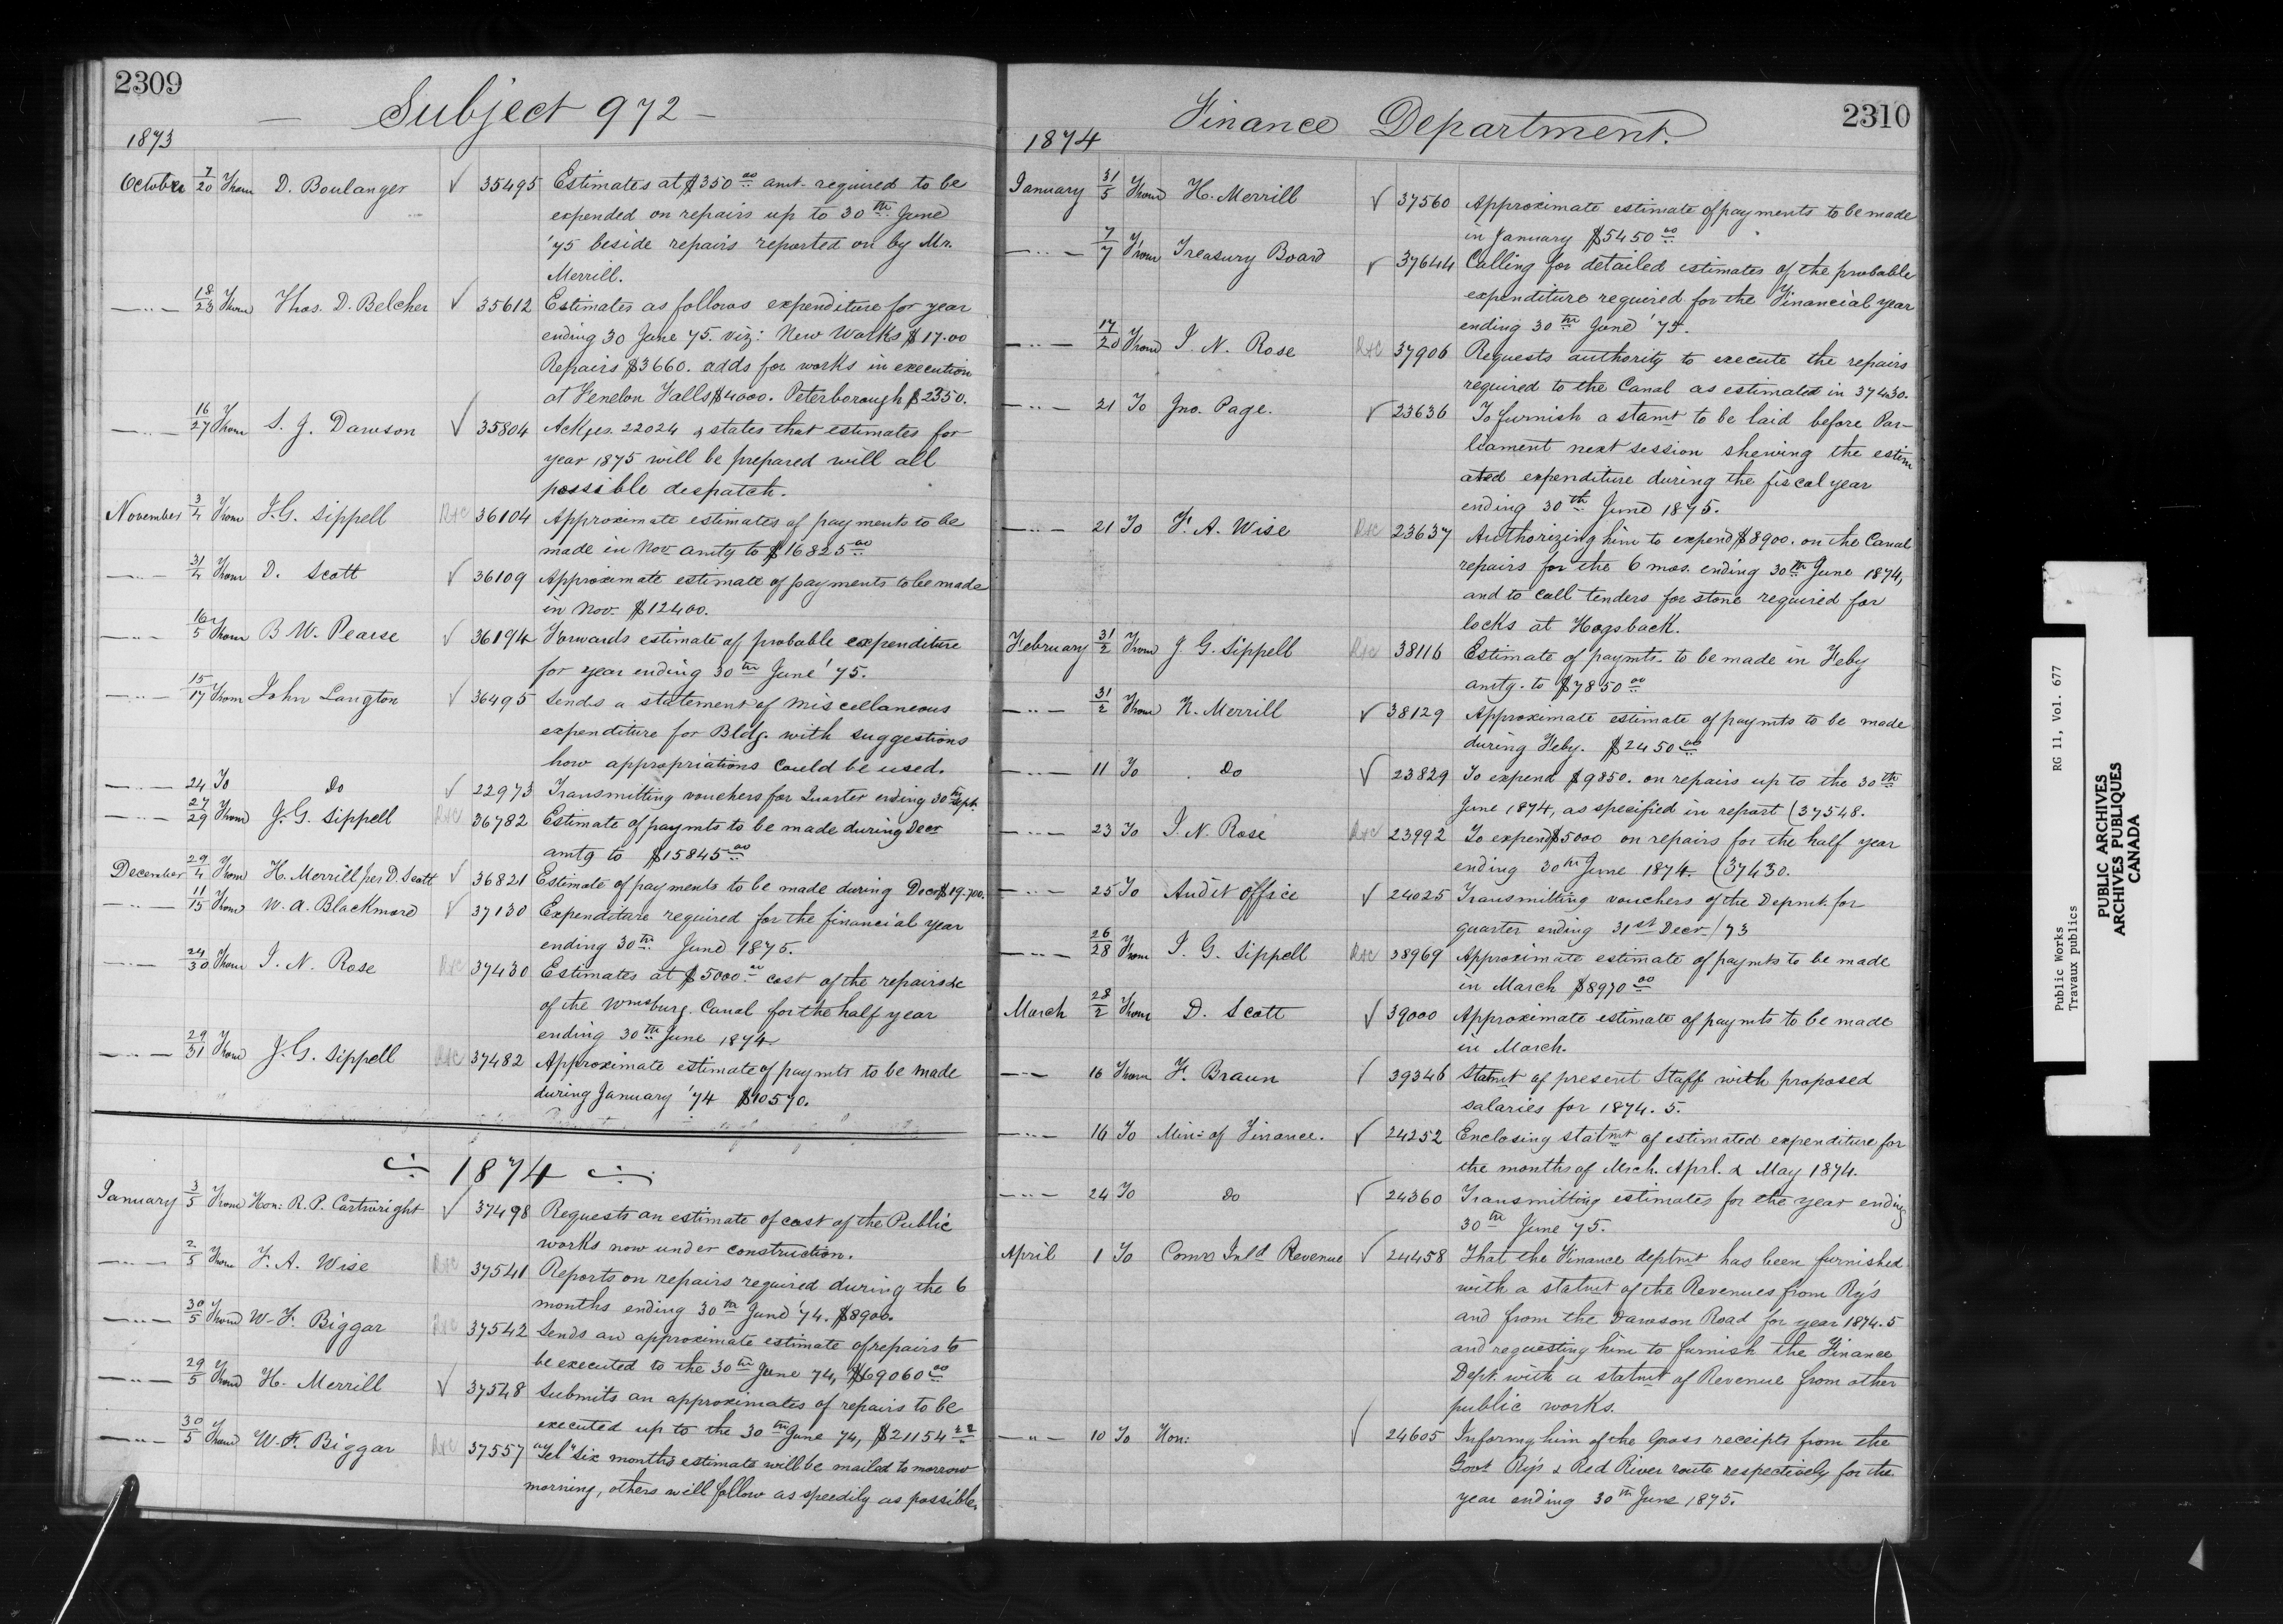 2309
— Subject 972 —
1873
October 7/20 From D. Boulanger ✓ 35495 Estimates at $350.00 amt. required to be
expended on repairs up to 30th June
'75 beside repairs reported on by Mr.
Merrill.
—"— 18/23 From Thos. D. Belcher ✓ 35612 Estimates as follows expenditure for year
ending 30 June 75. viz: New Works $17.00
Repairs $3660. adds for works in execution
at Fenelon Falls $4000. Peterborough $2350.
—"— 16/27 From S. J. Dawson ✓ 35804 Ackges. 22024 & states that estimates for
year 1875 will be prepared will all
possible despatch.
November 3/4 From J.G. Sippell R&C 36104 Approximate estimates of payments to be
made in Nov amtg to $16825.00
—"— 31/4 From D. Scott ✓ 36109 Approximate estimate of payments to be made
in Nov. $12400.
—"— 16/5 From B W. Pearse ✓ 36194 Forwards estimate of probable expenditure
for year ending 30th June '75.
—"— 15/17 From John Langton ✓ 36495 Sends a statement of miscellaneous
expenditure for Bldg. with suggestions
how appropriations could be used.
—"— 24 To Do ✓ 22973 Transmitting vouchers for Quarter ending 30th Sept.
—"— 27/29 From J.G. Sippell R&C 36782 Estimate of paymts to be made during Decr
amtg to $15845.00
December 29/4 From H. Merrill per D. Scott ✓ 36821 Estimate of payments to be made during Decr $19.700.
—"— 11/15 From W. A. Blackmore ✓ 37130 Expenditure required for the financial year
ending 30th June 1875.
—"— 24/30 From I. N. Rose R&C 37430 Estimates at $5000.00 cost of the repairs &c
of the Wmsburg. Canal for the half year
ending 30th June 1874
—"— 29/31 From J.G. Sippell R&C 37482 Approximate estimate of paymts to be made
during January '74 $10570.
1874
January 3/5 From Hon: R. P. Cartwright ✓ 37498 Requests an estimate of cost of the Public
works now under construction.
—"— 2/5 From F. A. Wise R&C 37541 Reports on repairs required during the 6
months ending 30th June '74. $8900.
—"— 30/5 From W. F. Biggar R&C 37542 Sends an approximate estimate of repairs to
be executed to the 30th June 74, $69060.00
—"— 29/5 From H. Merrill ✓ 37548 Submits an approximates of repairs to be
executed up to the 30th June 74, $21154.22
—"— 30/5 From W. F. Biggar R&C 37557 "Tel" Six months estimate will be mailed to morrow
morning, others will follow as speedily as possible.
2310
Finance Department.
1874
January 31/5 From H. Merrill ✓ 37560 Approximate estimate of payments to be made
in January $5450.00
—"— 7/7 From Treasury Board ✓ 37644 Calling for detailed estimates of the probable
expenditure required for the Financial year
ending 30th June '75.
—"— 17/20 From I. N. Rose R&C 37906 Requests authority to execute the repairs
required to the Canal as estimated in 37430.
—"— 21 To Jno. Page. ✓ 23636 To furnish a stamt to be laid before Par-
liament next session shewing the estim
ated expenditure during the fiscal year
ending 30th June 1875.
—"— 21 To F. A. Wise R&C 23637 Authorizing him to expend $8900. on the Canal
repairs for the 6 mos. ending 30th June 1874,
and to call tenders for stone required for
locks at Hogsback.
February 31/2 From J G. Sippell R&C 38116 Estimate of paymts. to be made in Feby
amtg. to $7850.00
—"— 31/2 From H. Merrill ✓ 38129 Approximate estimate of paymts to be made
during Feby. $2450.00
—"— 11 To Do ✓ 23829 To expend $9850. on repairs up to the 30th
June 1874, as specified in report (37548.
—"— 23 To I. N. Rose R&C 23992 To expend $5000 on repairs for the half year
ending 30th June 1874. (37430.
—"— 25 To Audit Office ✓ 24025 Transmitting vouchers of the Depmt. for
quarter ending 31st Decr /73
—"— 26/28 From J. G. Sippell R&C 38969 Approximate estimate of paymts to be made
in March $8970.00
March 28/2 From D. Scott ✓ 39000 Approximate estimate of paymts to be made
in March.
—"— 16 From F. Braun ✓ 39346 Statmt of present Staff with proposed
salaries for 1874. 5.
—"— 16 To Min: of Finance. ✓ 24252 Enclosing statmt of estimated expenditure for
the months of Mrch. Aprl. & May 1874.
—"— 24 To Do ✓ 24360 Transmitting estimates for the year ending
30th June 75.
April 1 To Comr Inld Revenue ✓ 24458 That the Finance deptmt has been furnished
with a statmt of the Revenues from Ry's
and from the Dawson Road for year 1874.5
and requesting him to furnish the Finance
Dept. with a statmt of Revenue from other
public works.
—"— 10 To Hon: ✓ 24605 Informg him of the Gross receipts from the
Govt Ry's & Red River route respectively for the
year ending 30th June 1875.
Public Works RG 11, Vol. 677
Travaux publics
PUBLIC ARCHIVES
ARCHIVES PUBLIQUES
CANADA